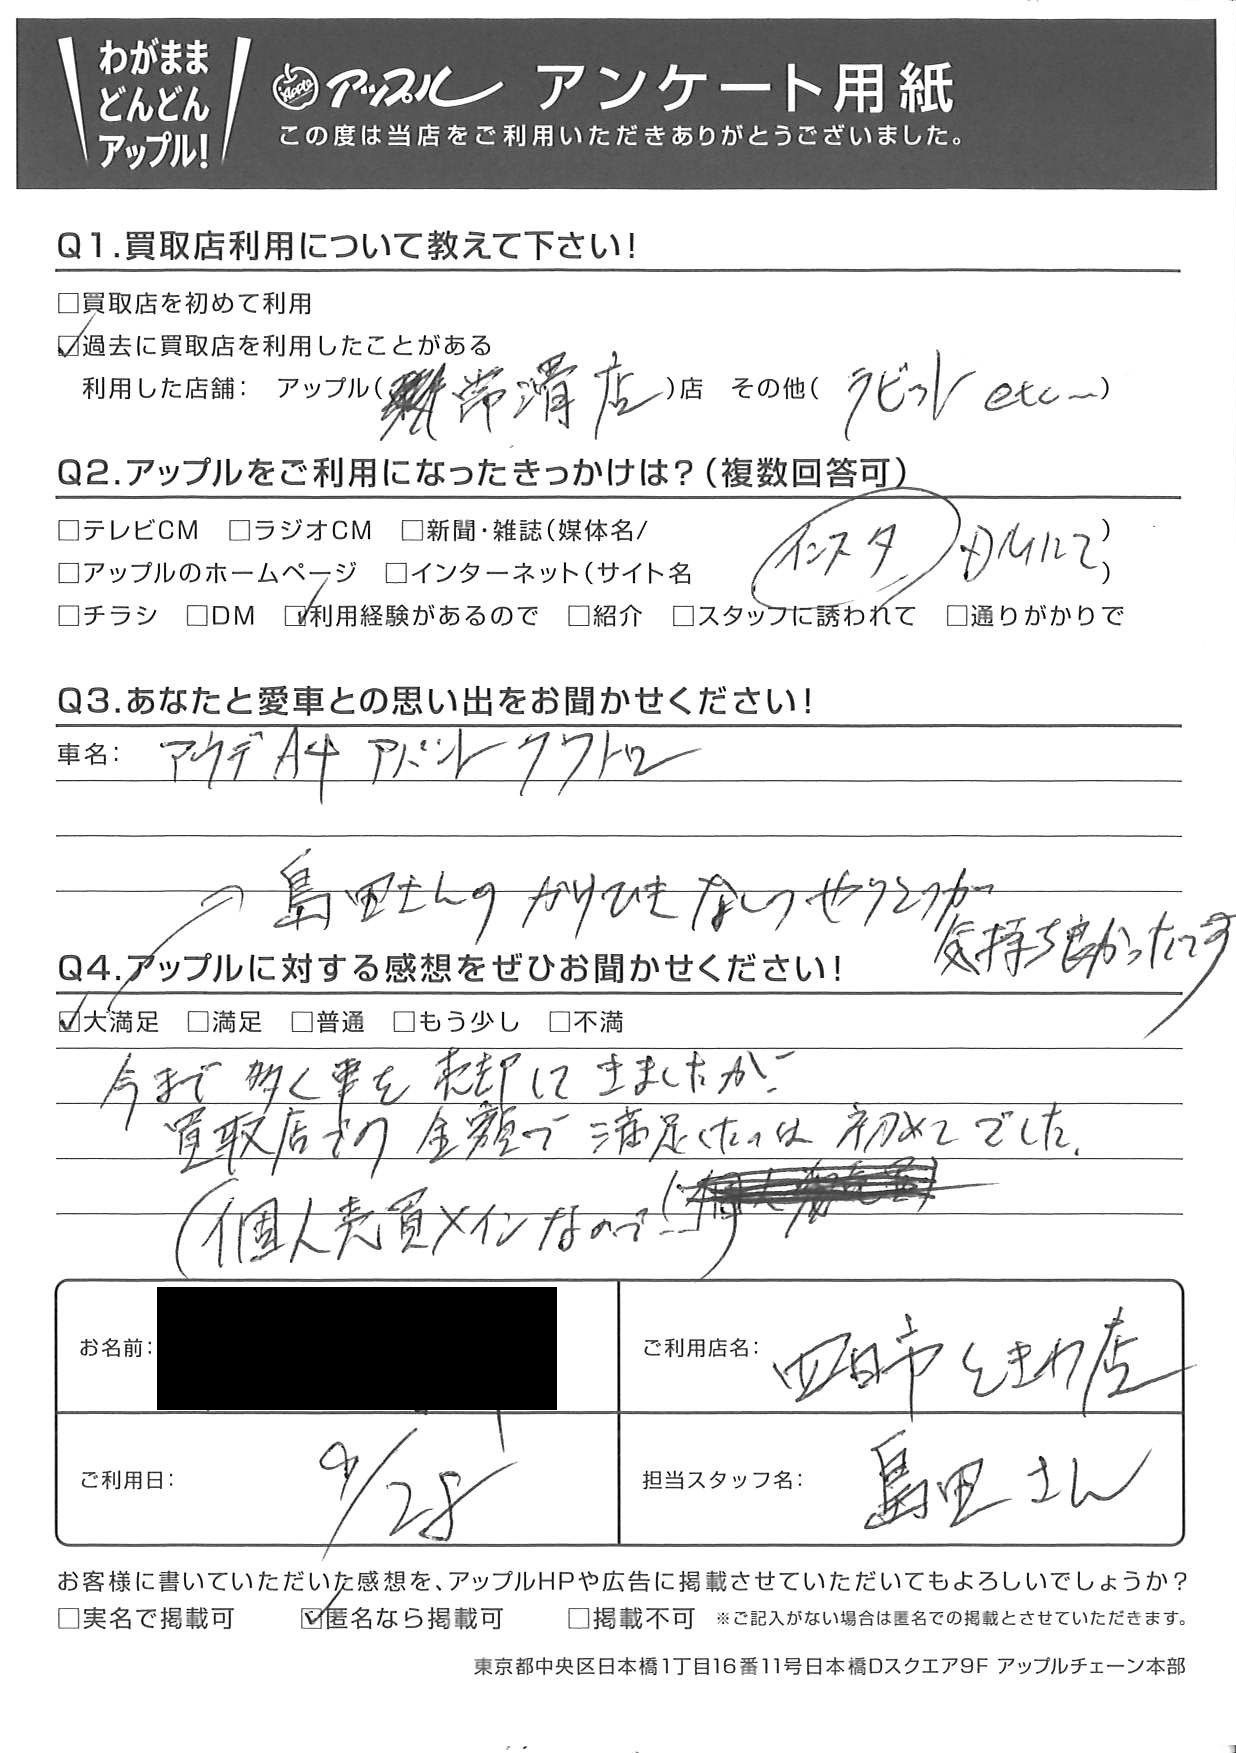 わがまま
どんどん
アップル!
Apple アップル アンケート用紙
この度は当店をご利用いただきありがとうございました。
Q1.買取店利用について教えて下さい!
□買取店を初めて利用
☑過去に買取店を利用したことがある
利用した店舗: アップル(常滑店)店 その他(ラビット etc〜)
Q2.アップルをご利用になったきっかけは?(複数回答可)
□テレビCM □ラジオCM □新聞・雑誌(媒体名/ )
□アップルのホームページ □インターネット(サイト名 インスタ )
□チラシ □DM ☑利用経験があるので □紹介 □スタッフに誘われて □通りがかりで
Q3.あなたと愛車との思い出をお聞かせください!
車名: アウデA4 アバント クワトロ
→島田さんの かけひきなしの
気持ち良かったです
Q4.アップルに対する感想をぜひお聞かせください!
☑大満足 □満足 □普通 □もう少し □不満
今まで多く車を売却してきましたが、
買取店での金額で満足したのは初めてでした。
(個人売買メインなので…)
お名前:
ご利用店名: 四日市ときわ店
ご利用日: 9/28
担当スタッフ名: 島田さん
お客様に書いていただいた感想を、アップルHPや広告に掲載させていただいてもよろしいでしょうか?
□実名で掲載可 ☑匿名なら掲載可 □掲載不可 ※ご記入がない場合は匿名での掲載とさせていただきます。
東京都中央区日本橋1丁目16番11号日本橋Dスクエア9F アップルチェーン本部